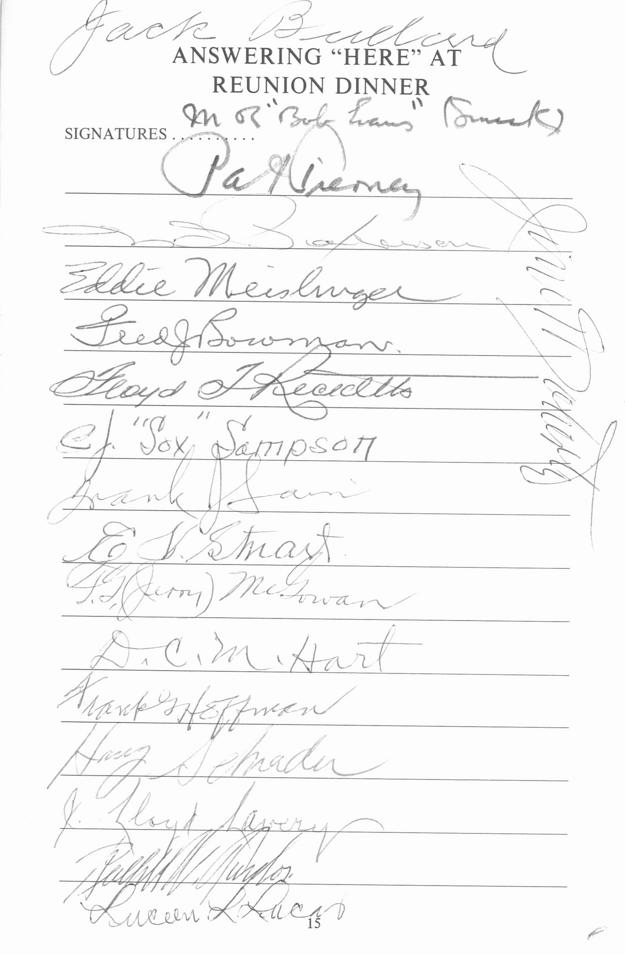 Jack Bullard
ANSWERING “HERE” AT
REUNION DINNER
M R "Bob Evans"
SIGNATURES . . . . . . . . . .
Pat Tierney
Eddie Meislinger
Fred J Bowman.
Floyd T
C J. "Sox" Sampson
Frank J Sain
E V. Stuart
(Jerry) McGowan
D. C. M. Hart
Frank G Heffman
Harry Schrader
J. Lloyd Lavery
Ralph W.
Lucien L Lucas
15